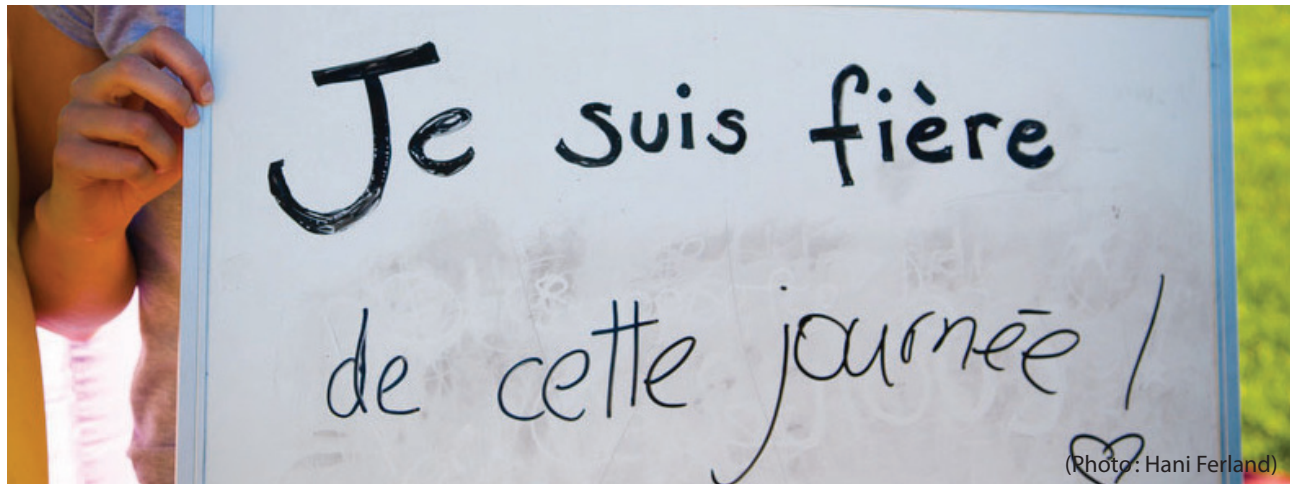 Je suis fière
de cette journée !
(Photo: Hani Ferland)